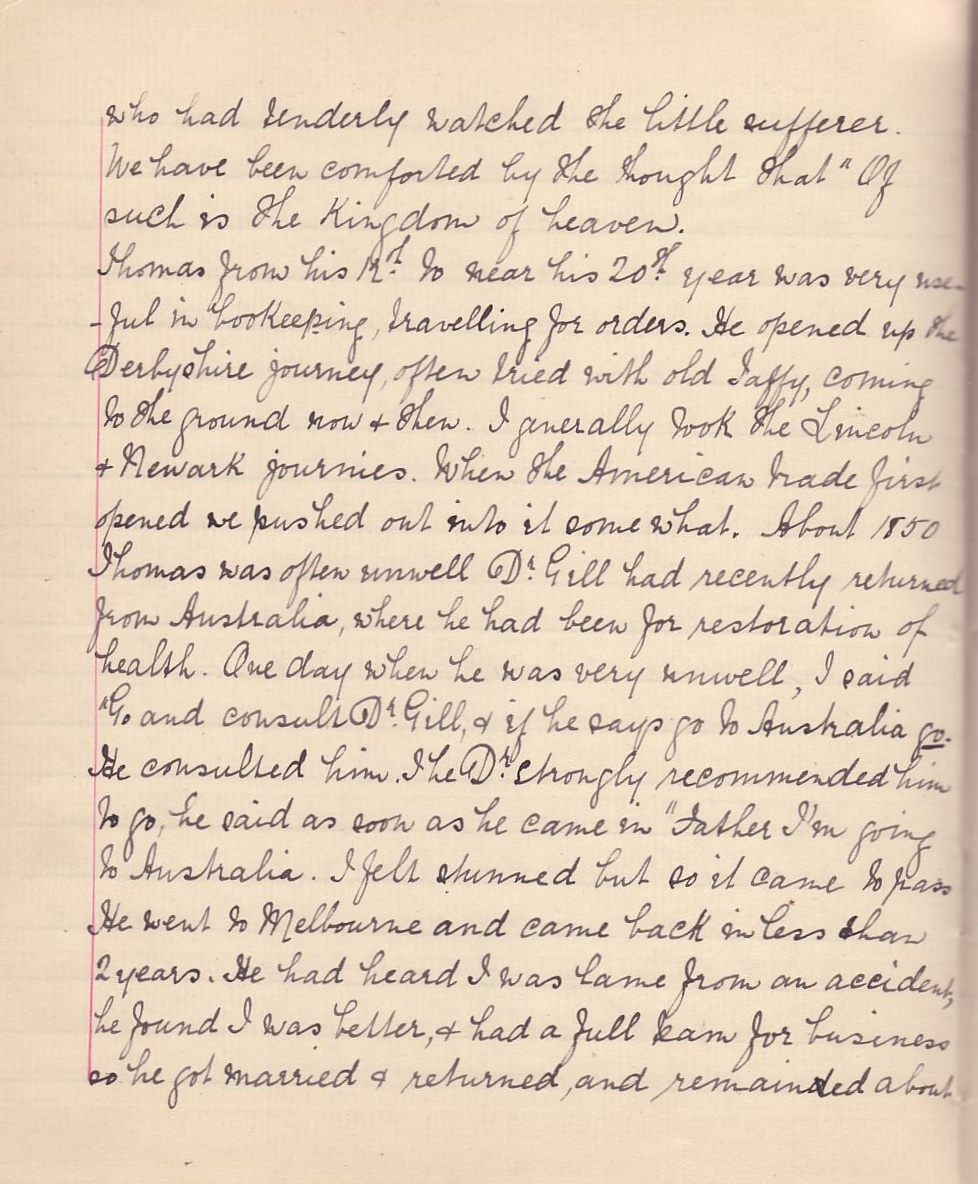 who had tenderly watched the little sufferer.
We have been comforted by the thought that "Of
such is the Kingdom of heaven.
Thomas from his 12th to near his 20th year was very use-
-ful in bookeeping, travelling for orders. He opened up the
Derbyshire journey, often tried with old Taffy, coming
to the ground now & then. I generally took the Lincoln
& Newark journies. When the American trade first
opened we pushed out into it somewhat. About 1850
Thomas was often unwell Dr. Gill had recently returned
from Australia, where he had been for restoration of
health. One day when he was very unwell, I said
"Go and consult Dr. Gill, & if he says go to Australia go.
He consulted him. The Dr. strongly recommended him
to go, he said as soon as he came in "Father I'm going
to Australia. I felt stunned but so it came to pass
He went to Melbourne and came back in less than
2 years. He had heard I was lame from an accident,
he found I was better, & had a full team for business
so he got married & returned, and remainded about